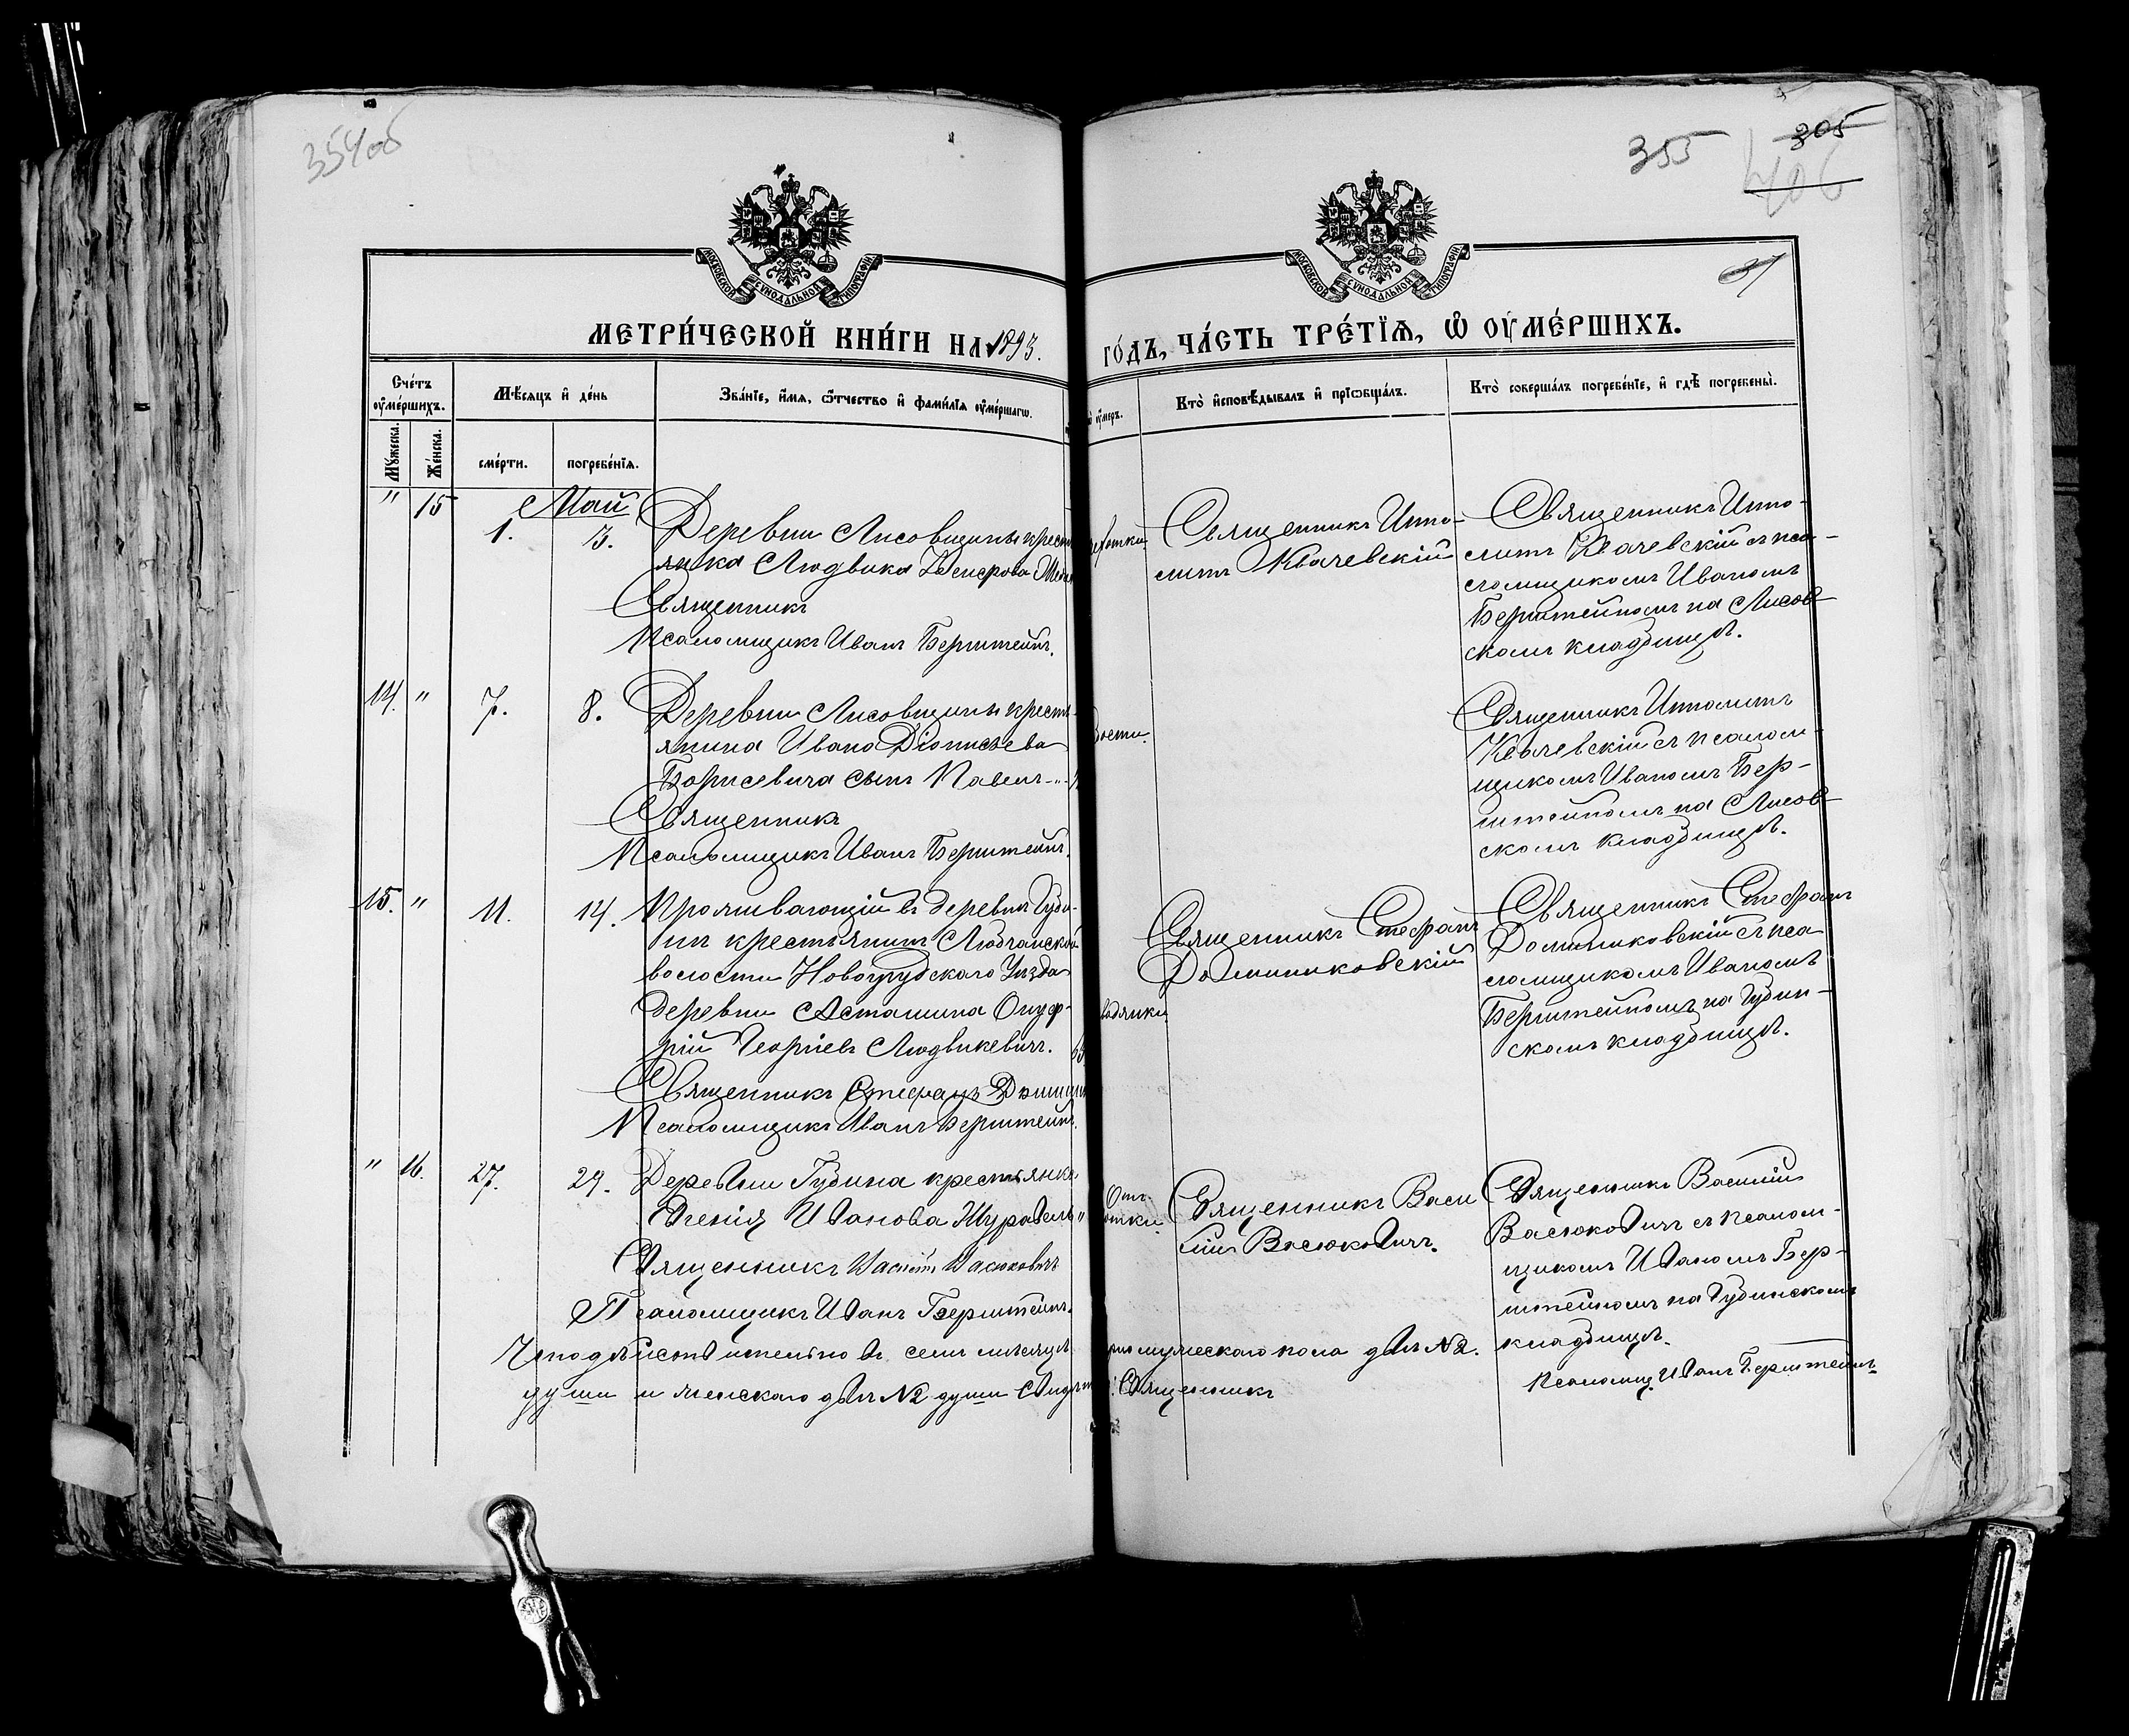 354об
355
305
406
31
МОСКОВСКОЙ СѴНОДАЛЬНОЙ ТИПОГРАФІИ
МОСКОВСКОЙ СѴНОДАЛЬНОЙ ТИПОГРАФІИ
МЕТРИ́ЧЕСКОЙ КНИ́ГИ НА 1893. ГО́ДЪ, ЧА́СТЬ ТРЕ́ТІѦ, Ѽ ОУ҆МЕ́РШИХЪ.
Сче́тъ оу҆ме́ршихъ.
Му́жеска.
Же́нска.
Мѣ́сяцъ и҆ де́нь
сме́рти.
погребе́нїѧ.
Зва́нїе, и҆́мѧ, ѻ҆́тчество и҆ фами́лїѧ оу҆ме́ршагѡ.
оу҆́меръ.
Кто̀ и҆сповѣ́дывалъ и҆ прїѡбща́лъ.
Кто̀ соверша́лъ погребе́нїе, и҆ гдѣ̀ погребены̀.
Май
" 15 1. 3.
Деревни Лисовщины крест
янка Людвика
Священникъ
Псаломщикъ Иванъ Бернштейнъ.
чахотки
Священникъ Иппо-
литъ Квачевскій
Священникъ Иппо-
литъ Квачевскій съ пса-
ломщикомъ Иваномъ
Бернштейномъ на Лисов
скомъ кладбищѣ.
14. " 7. 8.
Деревни Лисовщины кресть-
янина Ивана Діонисіева
Борисевича сынъ Павелъ
Священникъ
Псаломщикъ Иванъ Бернштейнъ.
Священникъ Ипполитъ
Квачевскій съ псалом-
щикомъ Иваномъ Берн-
штейномъ на Лисов
скомъ кладбищѣ.
15. " 11. 14.
Проживающій въ деревнѣ Гуди-
нѣ крестьянинъ Любчанской
волости Новогрудскаго Уѣзда
деревни Асташина Онуф-
рій Георгіевъ Людвикевичъ.
Священникъ Стефанъ
Псаломщикъ Иванъ Бернштейнъ.
водянки
Священникъ Стефанъ
Доминиковскій
Священникъ Стефанъ
Доминиковскій съ пса
ломщикомъ Иваномъ
Бернштейномъ на Гудин-
скомъ кладбищѣ.
" 16. 27. 29.
Деревни Гудина крестьянка
Иванова Журавель
Священникъ Василій Васюковичъ
Псаломщикъ Иванъ Бернштейнъ.
Отъ
чахотки
Священникъ Васи
лій Васюковичъ.
Священникъ Василій
Васюковичъ съ псалом-
щикомъ Иваномъ Бер-
штейномъ на Гудинскомъ
кладбищѣ.
Что дѣйствительно въ семъ мѣсяцѣ мужескаго пола двѣ №2.
души и женскаго двѣ №2 души Священникъ
Псаломщ. Иванъ Бернштейнъ